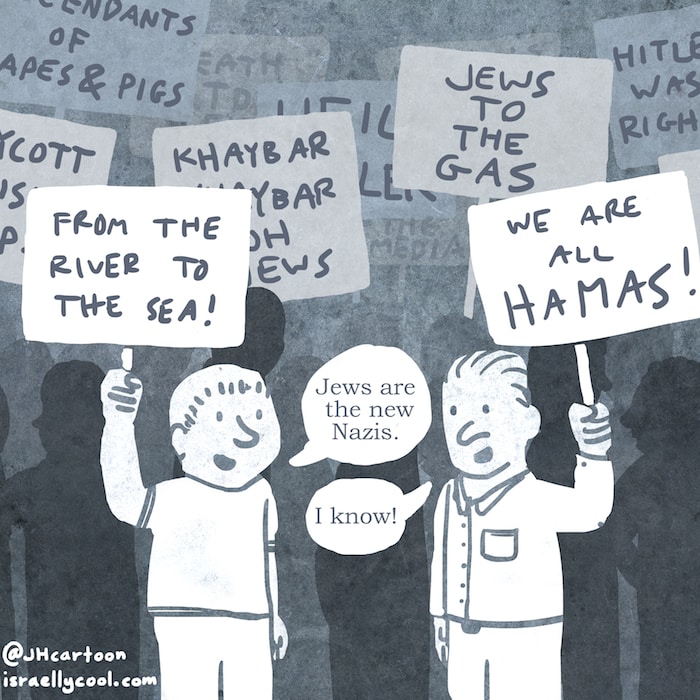 CENDANTS
OF
APES & PIGS
EATH
TO
JEWS
TO
THE
GAS
HITLE
WAS
RIGH
YCOTT
KHAYBAR
YBAR
OH
EWS
LER
THE
MEDIA
FROM THE
RIVER TO
THE SEA!
WE ARE
ALL
HAMAS!
Jews are
the new
Nazis.
I know!
@JHcartoon
israellycool.com